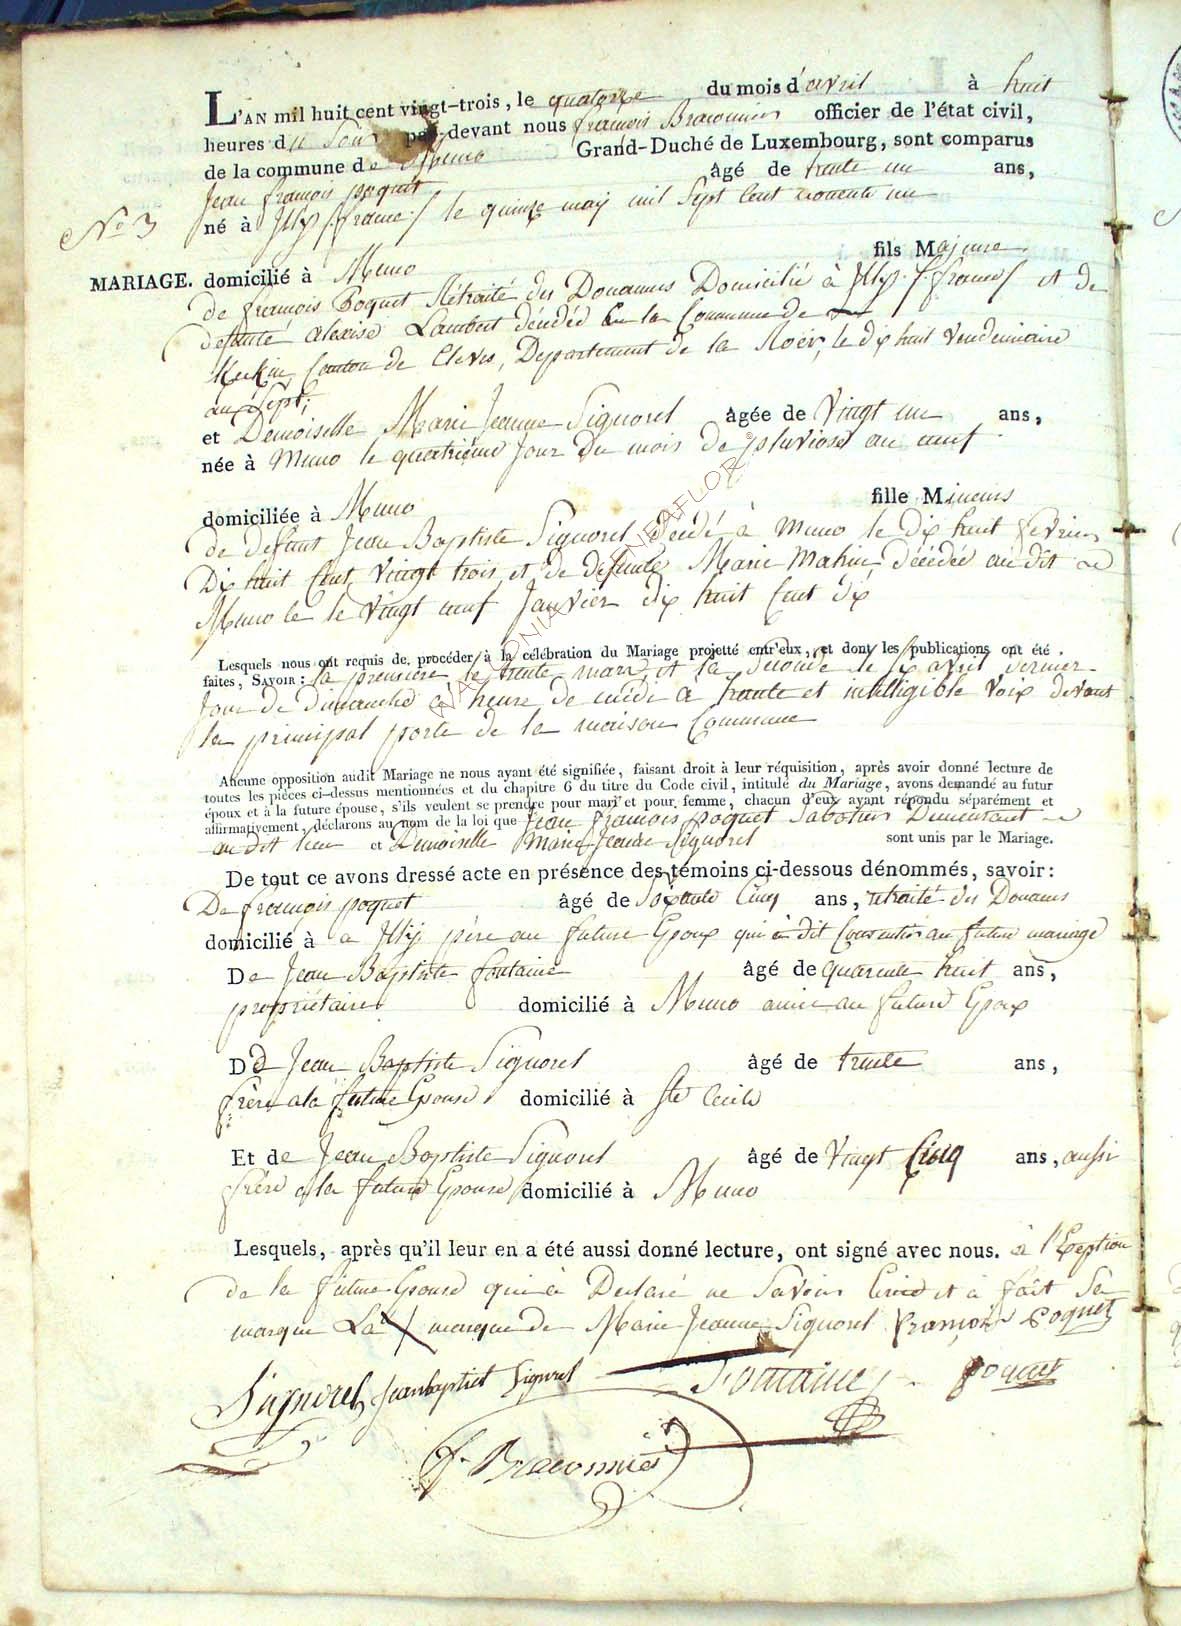 L'AN mil huit cent vingt-trois, le quatorze du mois d'avril à huit
heures du Soir par-devant nous françois Braconnier officier de l'état civil,
de la commune de Muno Grand-Duché de Luxembourg, sont comparus
Jean françois poquet âgé de trente un ans,
No 3
né à Illy /france/ le quinze may mil Sept Cent nonente un
fils Majeure
MARIAGE. domicilié à Muno
de françois Poquet Rétraité des Douannes Domicilié à Illy /france/ et de
defunte alexise Lambert décédée la Commune de
Canton de Cleves, Departement de la Roër, le dix huit Vendemiaire
an Sept;
et Demoiselle Marie Jeanne Signorel âgée de Vingt un ans,
née à Muno le quatrième Jour du mois de pluviose an neuf
domiciliée à Muno fille Mineurs
de defunt Jean Baptiste Signorel décédé à Muno le dix huit fevrier
Dix huit Cent Vingt trois et de defunte Marie Mahin Décédée au dit
Muno le le Vingt neuf Janvier dix huit Cent dix
Lesquels nous ont requis de procéder à la célébration du Mariage projetté entr'eux, et dont les publications ont été
faites, SAVOIR : la première le trente mars et la seconde le six avril dernier
Jour de Dimanche à heure de midi a haute et intelligible voix devant
la principal porte de la maison Commune
Aucune opposition audit Mariage ne nous ayant été signifiée, faisant droit à leur réquisition, après avoir donné lecture de
toutes les pièces ci-dessus mentionnées et du chapitre 6 du titre du Code civil, intitulé du Mariage, avons demandé au futur
époux et à la future épouse, s'ils veulent se prendre pour mari et pour femme, chacun d'eux ayant répondu séparément et
affirmativement, déclarons au nom de la loi que Jean françois poquet Sabotier Demeurant
au dit lieu et Demoiselle Marie Jeanne Signorel sont unis par le Mariage.
De tout ce avons dressé acte en présence des témoins ci-dessous dénommés, savoir:
De françois poquet âgé de Soixante Cinq ans, retraité des Douanes
domicilié à a Illy père au future Epoux qui à dit Consentir au future mariage
De Jean Baptiste fontaine âgé de quarente huit ans,
propriétaire domicilié à Muno amie au future Epoux
De Jean Baptiste Signorel âgé de trente ans,
frère a la future Epouse domicilié à Ste Cecile
Et de Jean Baptiste Signorel âgé de Vingt Cinq ans, aussi
frère a la future Epouse domicilié à Muno
Lesquels, après qu'il leur en a été aussi donné lecture, ont signé avec nous. à l'Exeption
de la future Epouse qui à Declaré ne Savoir Ecrire et à fait Sa
marque La X marque de Marie Jeanne Signorel François Poquet
Signorel Jeanbaptist Signorel Fontaine poquet
f. Braconnier
WALLONIA ENEAFLOR